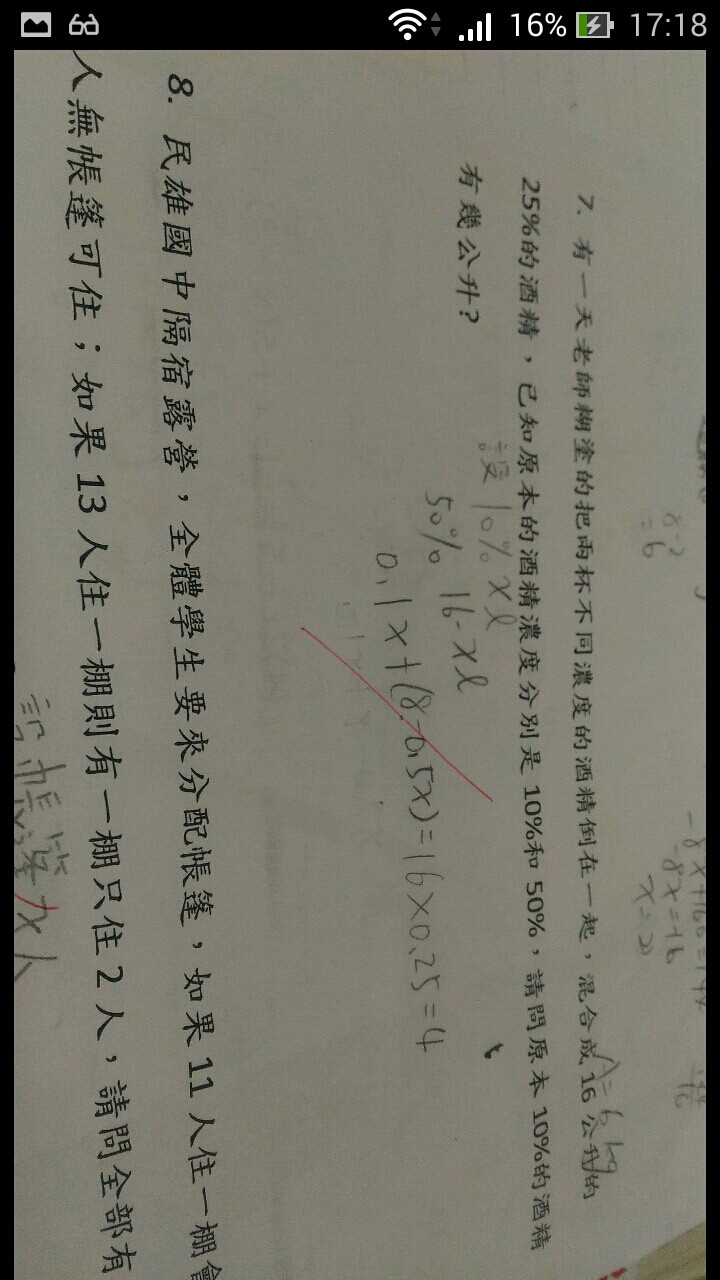 16% 17:18
8-2
=6
-8x=-16
7. 有一天老師糊塗的把兩杯不同濃度的酒精倒在一起，混合成 16 公升的
25%的酒精，已知原本的酒精濃度分別是 10%和 50%，請問原本 10%的酒精
有幾公升？
設 10% xl
50% 16-xl
0.1x+(8-0.5x)=16×0.25=4
8. 民雄國中隔宿露營，全體學生要來分配帳篷，如果 11 人住一棚會
人無帳篷可住；如果 13 人住一棚則有一棚只住 2 人，請問全部有